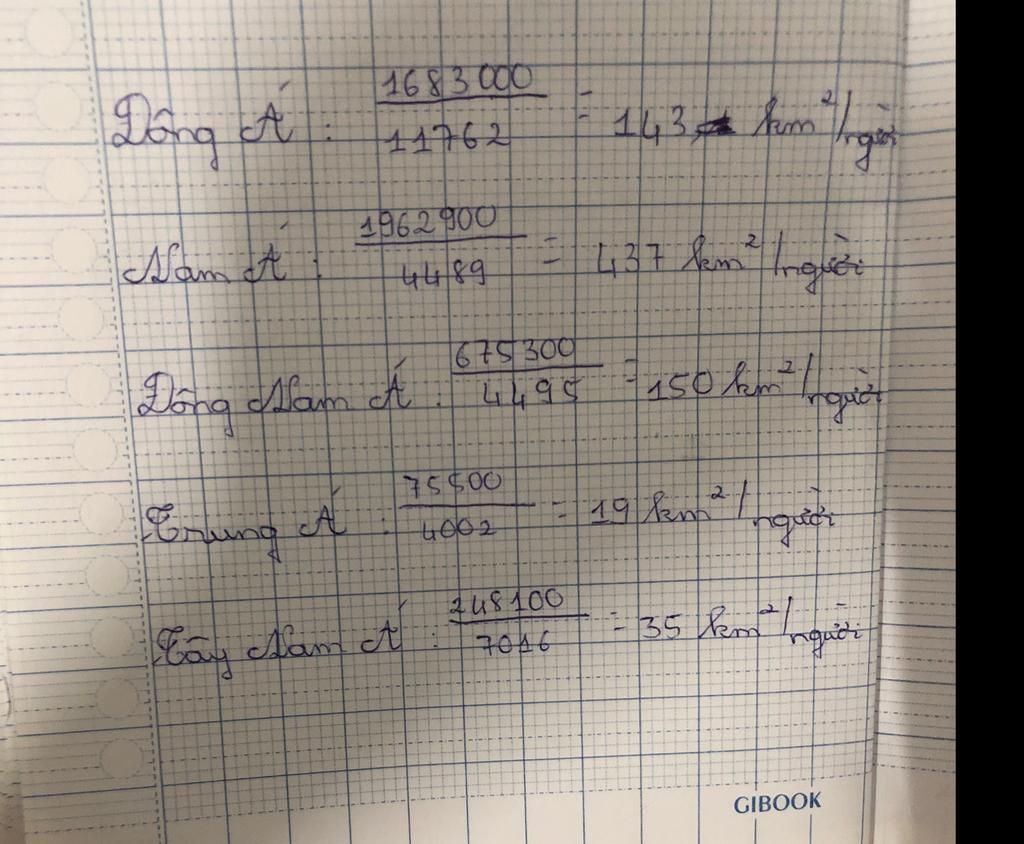 Đông Á : 1683000/11762 = 143 km²/người
Nam Á : 1962900/4489 = 437 km²/người
Đông Nam Á : 675300/4495 = 150 km²/người
Trung Á : 75500/4002 = 19 km²/người
Tây Nam Á : 248100/7016 = 35 km²/người
GIBOOK